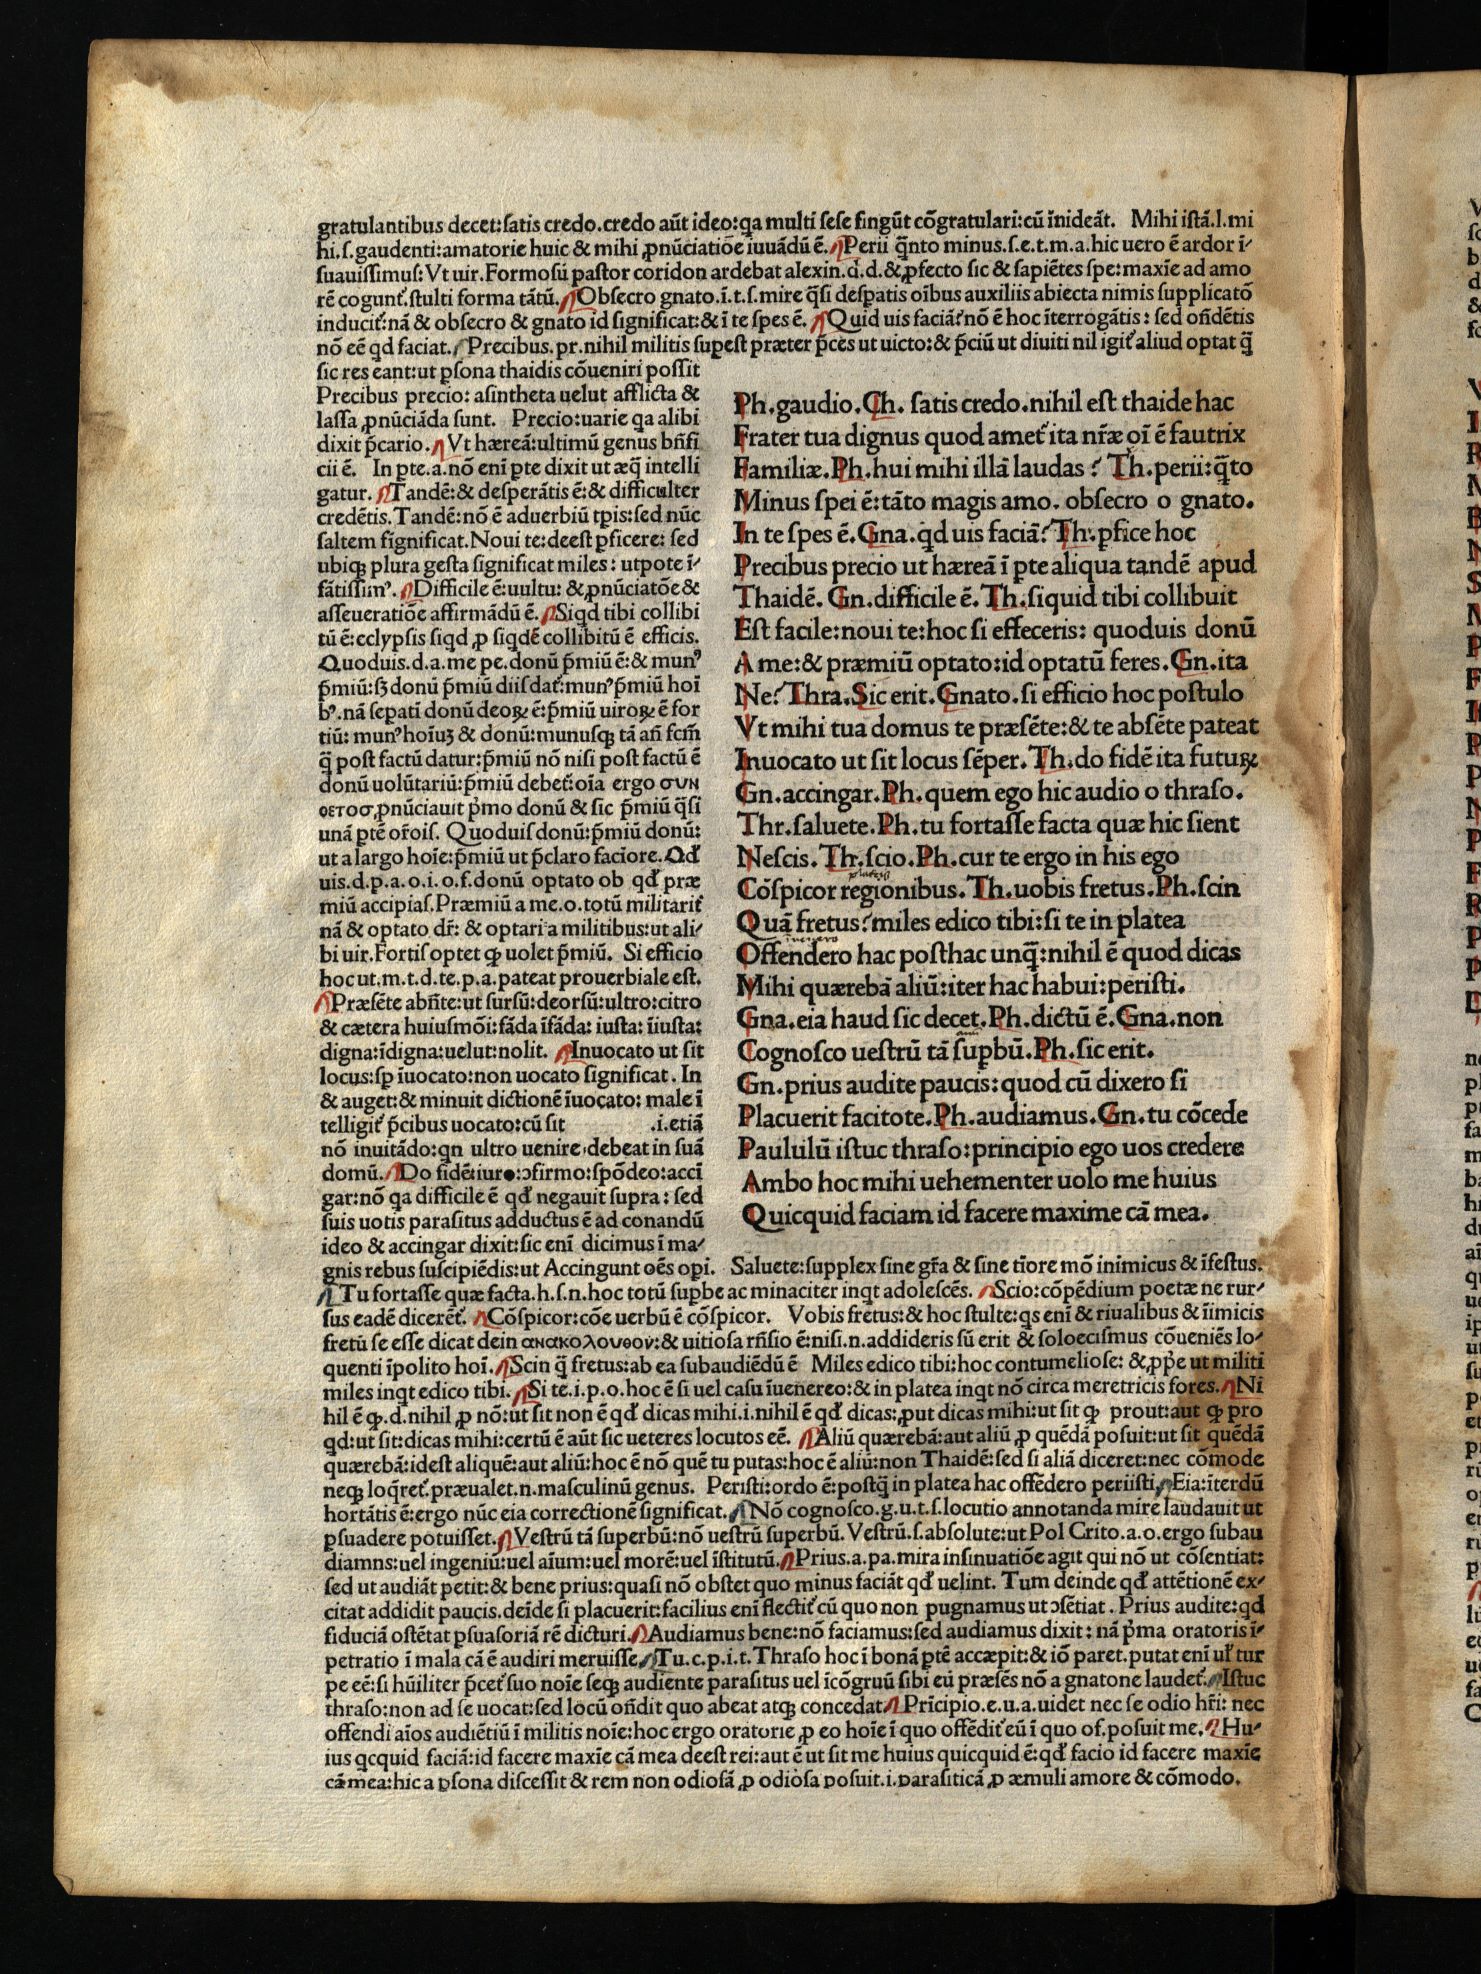 gratulantibus decet:satis credo.credo aūt ideo:qa multi sese fingūt cōgratulari:cū īnideāt. Mihi istā.l.mi
hi.s.gaudenti:amatorie huic & mihi ꝓnūciatiōe iuuādū ē. Perii q̄nto minus.s.e.t.m.a.hic uero ē ardor ī-
suauissimus:Vt uir.Formosū pastor coridon ardebat alexin.q̇.d.&ꝓfecto sic & sapiētes spe:maxīe ad amo
rē cogunt᷑.stulti forma tātū. Obsecro gnato.ī.t.s.mire q̄si desꝑatis oībus auxiliis abiecta nimis supplicatō
inducit᷑:nā & obsecro & gnato id significat:& ī te spes ē. Quid uis faciā?nō ē hoc īterrogātis: sed oñdētis
nō eē qd faciat. Precibus.pr.nihil militis suꝑest præter p̄ces ut uicto:& p̄ciū ut diuiti nil igit᷑ aliud optat q̄
sic res eant:ut ꝑsona thaidis cōueniri possit
Precibus precio: asintheta uelut afflicta &
lassa ꝓnūciāda sunt. Precio:uarie qa alibi
dixit p̄cario. Vt hæreā:ultimū genus bñfi
cii ē. In ꝑte.a.nō enī ꝑte dixit ut æq̄ intelli
gatur. Tandē:& desperātis ē:& difficulter
credētis.Tandē:nō ē aduerbiū tꝑis:sed nūc
saltem significat.Noui te:deest ꝑficere: sed
ubiqꝫ plura gesta significat miles: utpote ī-
fātissimꝰ. Difficile ē:uultu: &ꝓnūciatōe &
asseueratiōe affirmādū ē. Siqd tibi collibi
tū ē:eclypsis siqd ꝓ siqdē collibitū ē efficis.
Quoduis.d.a.me pe.donū p̄miū ē:& munꝰ
p̄miū:sꝫ donū p̄miū diis dat᷑:munꝰ p̄miū hoī
bꝰ.nā sepatī donū deoꝝ ē:p̄miū uiroꝝ ē for
tiū: munꝰ hoīuꝫ & donū:munusqꝫ tā añ fcm̄
q̄ post factū datur:p̄miū nō nisi post factū ē
donū uolūtariū:p̄miū debet᷑:oīa ergo συν
θετοσ ꝓnūciauit p̄mo donū & sic p̄miū q̄si
unā ꝑtē or̄ois. Quoduis donū:p̄miū donū:
ut a largo hoīe:p̄miū ut p̄claro faciore.Qď
uis.d.p.a.o.i.o.f.donū optato ob qď præ
miū accipias.Præmiū a me.o.totū militarit᷑
nā & optato dr̄: & optari a militibus:ut ali-
bi uir.Fortis optet qꝫ uolet p̄miū. Si efficio
hoc ut.m.t.d.te.p.a.pateat prouerbiale est.
Præsēte abñte:ut sursū:deorsū:ultro:citro
& cætera huiusmōi:fāda īfāda: iusta: īiusta:
digna:īdigna:uelut:nolit. Inuocato ut sit
locus:sꝑ īuocato:non uocato significat. In
& auget:& minuit dictionē īuocato: male ī
telligit᷑ p̄cibus uocato:cū sit .i.etiā
nō inuitādo:qn ultro uenire debeat in suā
domū. Do fidē:iuro:ↄfirmo:spōdeo:accī
gar:nō qa difficile ē qď negauit supra: sed
suis uotis parasitus adductus ē ad conandū
ideo & accingar dixit:sic enī dicimus ī ma-
Ph.gaudio.Ch. satis credo.nihil est thaide hac
Frater tua dignus quod amet᷑ ita nr̄æ oī ē fautrix
Familiæ.Ph.hui mihi illā laudas? Th.perii:q̄to
Minus spei ē:tāto magis amo. obsecro o gnato.
In te spes ē.Gna.qd uis faciā?Th.ꝑfice hoc
Precibus precio ut hæreā ī ꝑte aliqua tandē apud
Thaidē. Gn.difficile ē. Th.siquid tibi collibuit
Est facile:noui te:hoc si effeceris: quoduis donū
A me:& præmiū optato:id optatū feres.Gn.ita
Ne? Thra.Sic erit.Gnato.si efficio hoc postulo
Vt mihi tua domus te præsēte:& te absēte pateat
Inuocato ut sit locus sēper. Th.do fidē ita futuꝝ
Gn.accingar.Ph.quem ego hic audio o thraso.
Thr.saluete.Ph.tu fortasse facta quæ hic sient
Nescis. Thr.scio.Ph.cur te ergo in his ego
Cōspicor regionibus. Th.uobis fretus.Ph.scin
Quā fretus?miles edico tibi:si te in platea
Offendero hac posthac unq̄:nihil ē quod dicas
Mihi quærebā aliū:iter hac habui:peristi.
Gna.eia haud sic decet.Ph.dictū ē.Gna.non
Cognosco uestrū tā suꝑbū.Ph.sic erit.
Gn.prius audite paucis:quod cū dixero si
Placuerit facitote.Ph.audiamus.Gn.tu cōcede
Paululū istuc thraso:principio ego uos credere
Ambo hoc mihi uehementer uolo me huius
Quicquid faciam id facere maxime cā mea.
gnis rebus suscipiēdis:ut Accingunt oēs oꝑi. Saluete:supplex sine gr̄a & sine tīore mō inimicus & īfestus.
Tu fortasse quæ facta.h.s.n.hoc totū suꝑbe ac minaciter inqt adolescēs. Scio:cōpēdium poetæ ne rur-
sus eadē dicerēt᷑. Cōspicor:cōe uerbū ē cōspicor. Vobis fretus:& hoc stulte:qs enī & riualibus & īimicis
fretū se esse dicat dein ανακολουθον:& uitiosa rñsio ē:nisi.n.addideris sū erit & soloecismus cōueniēs lo-
quenti īpolito hoī. Scin q̄ fretus:ab ea subaudiēdū ē Miles edico tibi:hoc contumeliose: &ꝓpe ut militi
miles inqt edico tibi. Si te.i.p.o.hoc ē si uel casu īuenereo:& in platea inqt nō circa meretricis fores. Ni
hil ē qꝫ.d.nihil ꝓ nō:ut sit non ē qď dicas mihi.i.nihil ē qď dicas:ꝓut dicas mihi:ut sit qꝫ prout:aut qꝫ pro
qd:ut sit:dicas mihi:certū ē aūt sic ueteres locutos eē. Aliū quærebā:aut aliū ꝓ quēdā posuit:ut sit quēdā
quærebā:idest aliquē:aut aliū:hoc ē nō quē tu putas:hoc ē aliū:non Thaidē:sed si aliā diceret:nec cōmode
neqꝫ loq̄ret᷑.præualet.n.masculinū genus. Peristi:ordo ē:postq̄ in platea hac offēdero periisti. Eia:īterdū
hortātis ē:ergo nūc eia correctionē significat. Nō cognosco.g.u.t.s.locutio annotanda mire laudauit ut
ꝑsuadere potuisset. Vestrū tā superbū:nō uestrū superbū.Vestrū.s.absolute:ut Pol Crito.a.o.ergo subau
diamns:uel ingeniū:uel aīum:uel morē:uel īstitutū. Prius.a.pa.mira insinuatiōe agit qui nō ut cōsentiat:
sed ut audiāt petit:& bene prius:quasi nō obstet quo minus faciāt qď uelint. Tum deinde qď attētionē ex-
citat addidit paucis.deīde si placuerit:facilius enī flectit᷑ cū quo non pugnamus ut ↄsētiat. Prius audite:qd
fiduciā ostētat ꝑsuasoriā rē dicturi. Audiamus bene:nō faciamus:sed audiamus dixit: nā p̄ma oratoris ī-
petratio ī mala cā ē audiri meruisse. Tu.c.p.i.t.Thraso hoc ī bonā ꝑtē accæpit:& iō paret.putat enī uľtur
pe eē:si hūiliter p̄cet᷑ suo noīe seqꝫ audiente parasitus uel īcōgruū sibi eū præsēs nō a gnatone laudet᷑. Istuc
thraso:non ad se uocat:sed locū oñdit quo abeat atqꝫ concedat. Prīcipio.e.u.a.uidet nec se odio hr̄i: nec
offendi aīos audiētiū ī militis noīe:hoc ergo oratorie ꝓ eo hoīe ī quo offēdit᷑ eū ī quo of.posuit me. Hu-
ius qcquid faciā:id facere maxīe cā mea deest rei:aut ē ut sit me huius quicquid ē:qď facio id facere maxīe
cā mea:hic a ꝑsona discessit & rem non odiosā ꝓ odiosa posuit.i.parasiticā ꝓ æmuli amore & cōmodo.